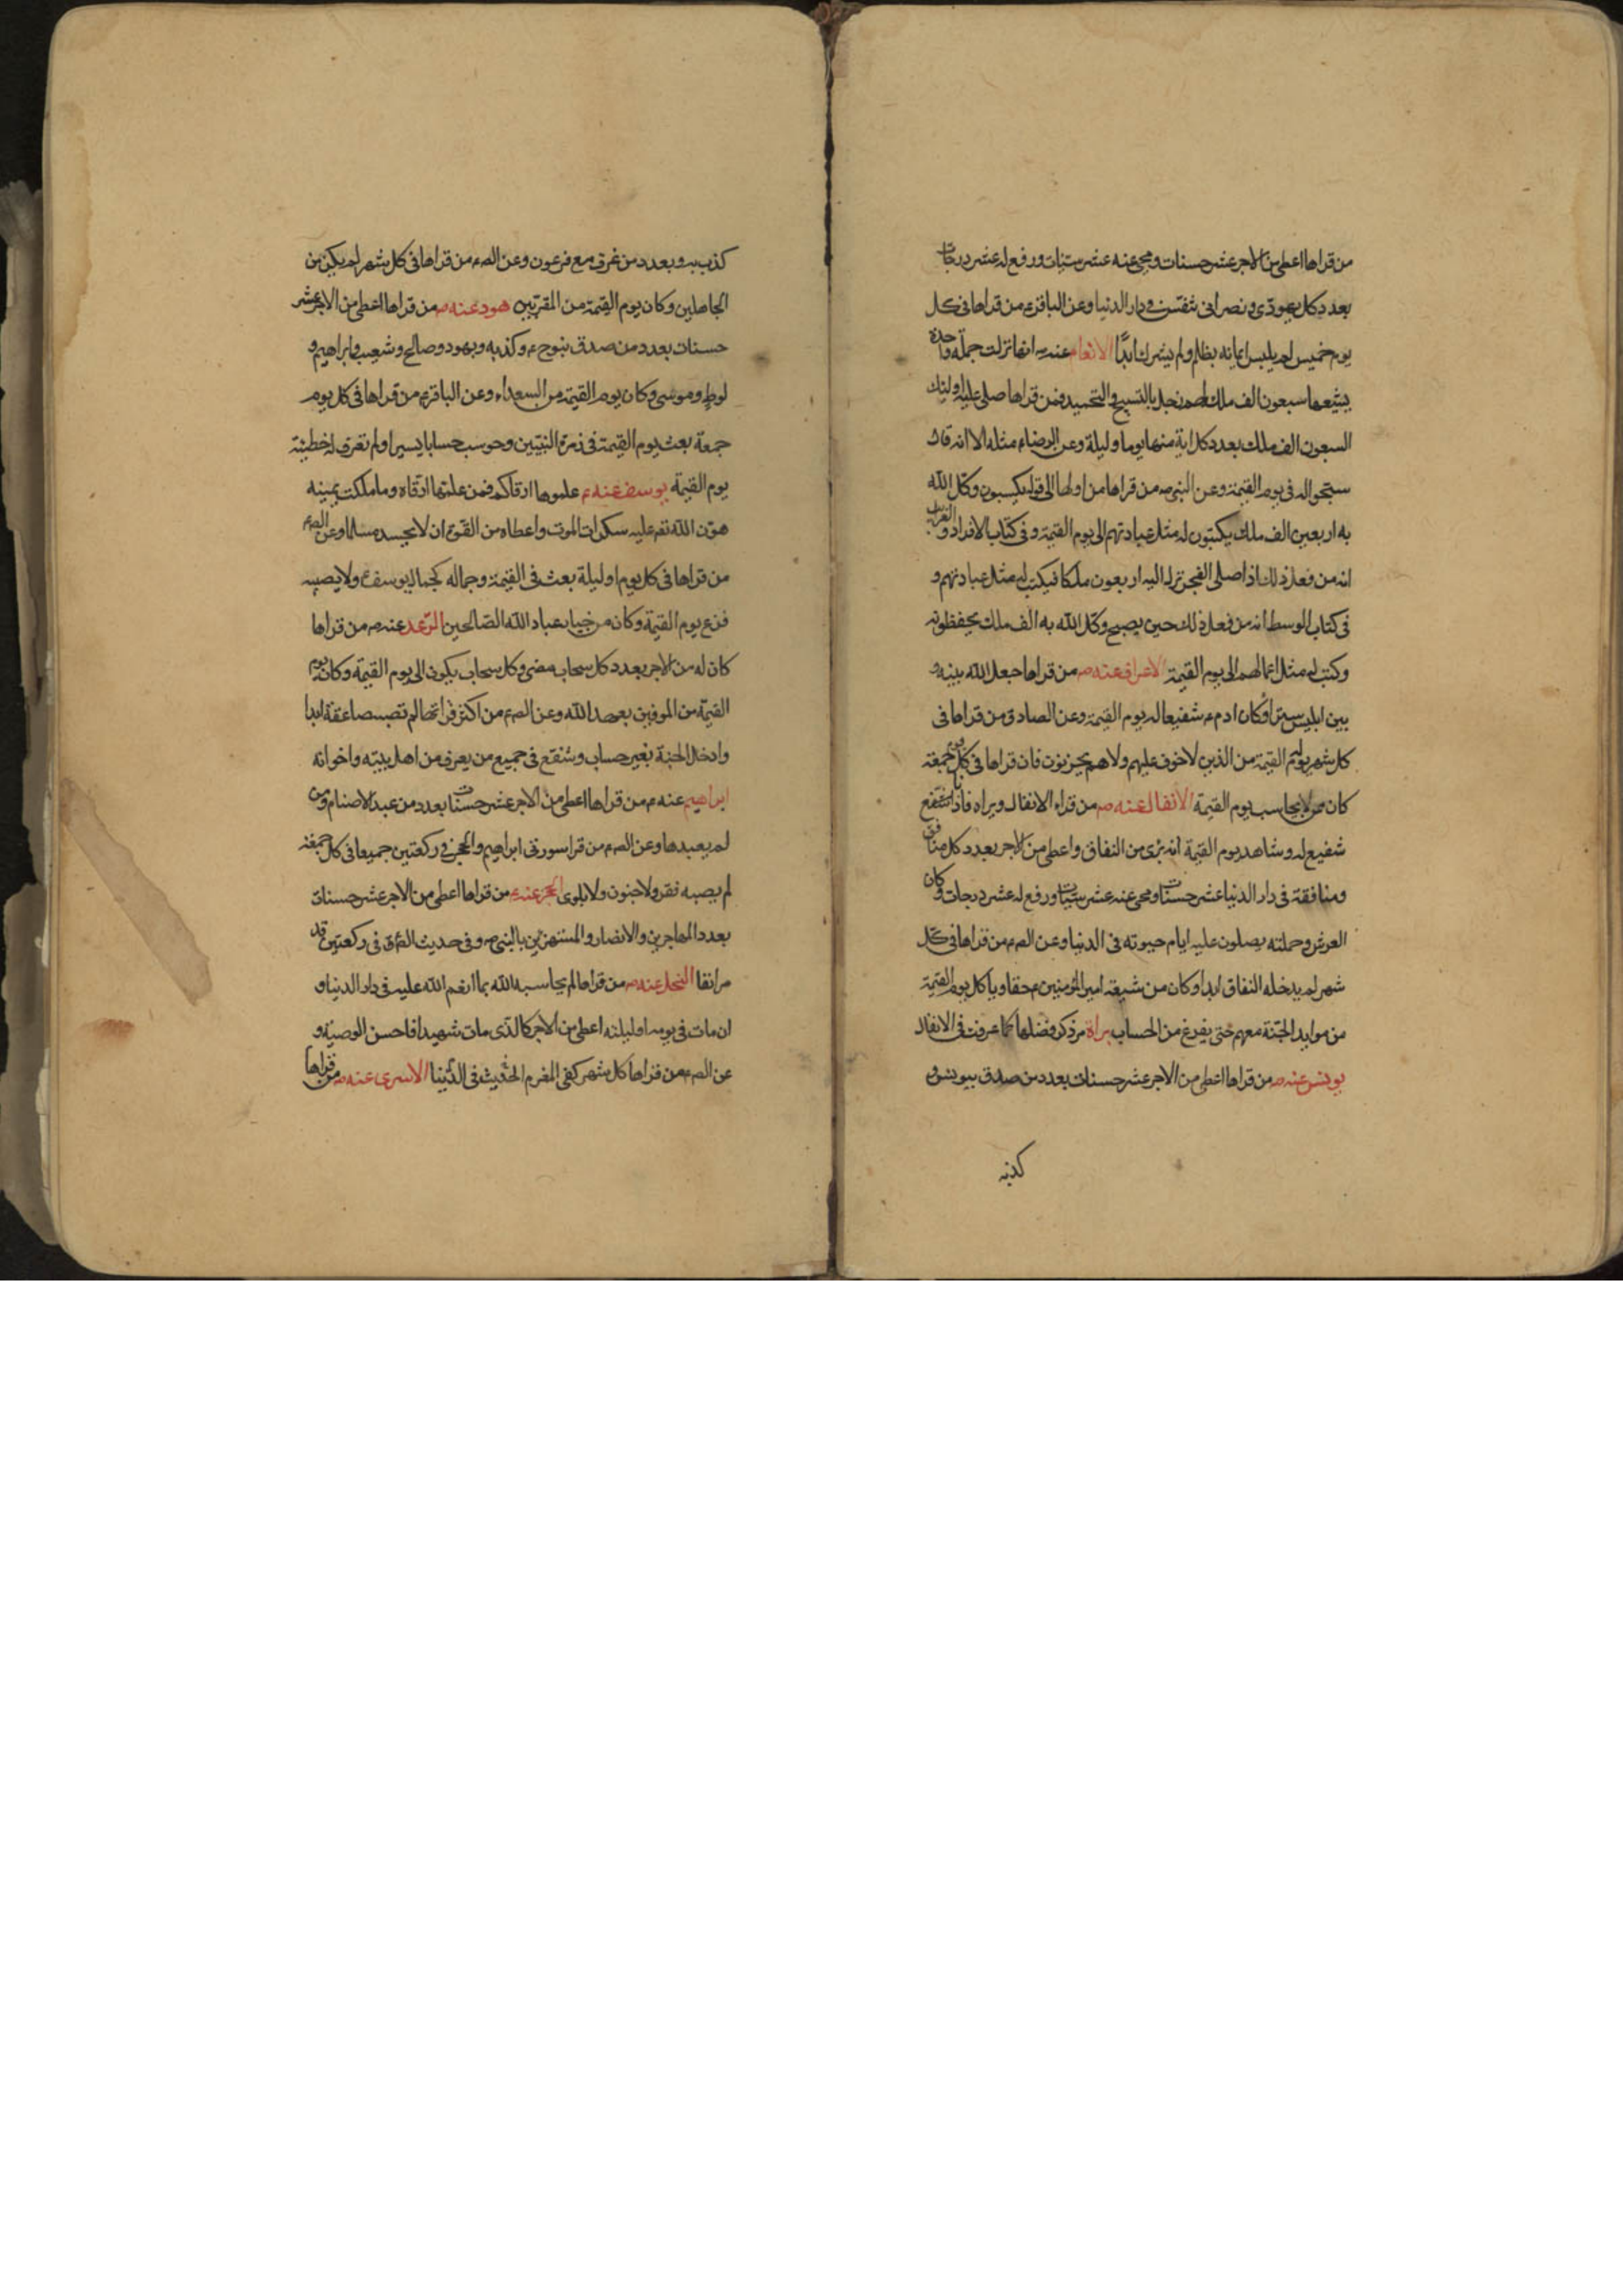 من قراها اعطى من الاجر عشر حسنات ومحى عنه عشر سيئات ورفع له عشر درجات
بعدد كل يهودى ونصرانى تنفس فى دار الدنيا وعن الباقرع من قراها فى كل
يوم خميس لم يلبس ايمانه بظلم ولم يشرك ابدا الانعام عنه ص انها نزلت جملة واحدة
يشيعها سبعون الف ملك لهم زجل بالتسبيح والتحميد فمن قراها صلى عليه اولئك
السبعون الف ملك بعدد كل اية منها يوما وليلة وعن الرضاء مثله الا انه قال
سبحوا له فى يوم القيمة وعن النبى ص من قراها من اولها الى قوله يكسبون وكل الله
به اربعين الف ملك يكتبون له مثل عبادتهم الى يوم القيمة وفى كتاب الافراد والغرايب
انه من فعل ذلك اذا صلى الفجر نزل اليه اربعون ملكا فيكتب له مثل عبادتهم و
فى كتاب الوسط انه من فعل ذلك حين يصبح وكل الله به الف ملك يحفظونه
وكتب له مثل اعمالهم الى يوم القيمة الاعراف عنه ص من قراها جعل الله بينه و
بين ابليس سترا وكان ادم ع شفيعا له يوم القيمة وعن الصادق من قراها فى
كل شهر كان يوم القيمة من الذين لا خوف عليهم ولا هم يحزنون فان قراها فى كل جمعة
كان ممن لا يحاسب يوم القيمة الانفال عنه ص من قراء الانفال وبراه فانا
شفيع له وشاهد يوم القيمة انه برى من النفاق واعطى من الاجر بعدد كل منافق
ومنافقة فى دار الدنيا عشر حسنات ومحى عنه عشر سيئات ورفع له عشر درجات وكان
العرش وحملته يصلون عليه ايام حيوته فى الدنيا وعن الصع من قراها فى كل
شهر لم يدخله النفاق ابدا وكان من شيعة امير المؤمنين ع حقا وياكل يوم القيمة
من موايد الجنة معهم حتى يفرغ من الحساب براة مر ذكر فضلها كما عرفت فى الانفال
يونس عنه ص من قراها اعطى من الاجر عشر حسنات بعدد من صدق بيونس و
كذب
كذب به وبعدد من غرق مع فرعون وعن الصع من قراها فى كل شهر لم يكن من
الجاهلين وكان يوم القيمة من المقربين هود عنه ص من قراها اعطى من الاجر عشر
حسنات بعدد من صدق بنوح ع وكذب به وبهود وصالح وشعيب وابراهيم و
لوط وموسى وكان يوم القيمة من السعداء وعن الباقرع من قراها فى كل يوم
جمعة بعث يوم القيمة فى زمرة النبيين وحوسب حسابا يسيرا ولم تعرف له خطيئة
يوم القيمة يوسف عنه ع علموها ارقاكم فمن علمها ارقاه وما ملكت يمينه
هون الله تع عليه سكرات الموت واعطاه من القوة ان لا يحسد مسلما وعن الصع
من قراها فى كل يوم او ليلة بعث فى القيمة وجماله كجمال يوسف ع ولا يصيبه
فزع يوم القيمة وكان من خيار عباد الله الصالحين الرعد عنه ص من قراها
كان له من الاجر بعدد كل سحاب مضى وكل سحاب يكون الى يوم القيمة وكان يوم
القيمة من الموفين بعهد الله وعن الصع من اكثر قراتها لم تصبه صاعقة ابدا
وادخل الجنة بغير حساب وشفع فى جميع من يعرف من اهل بيته واخوانه
ابراهيم عنه ع من قراها اعطى من الاجر عشر حسنات بعدد من عبد الاصنام ومن
لم يعبدها وعن الصع من قرا سورتى ابراهيم والحجر فى ركعتين جميعا فى كل جمعة
لم يصبه فقر ولا جنون ولا بلوى الحجر عنه ع من قراها اعطى من الاجر عشر حسنات
بعدد المهاجرين والانصار والمستهزئين بالنبى ص وفى حديث الصع فى ركعتين قد
مر انفا النحل عنه ص من قراها لم يحاسبه الله بما انعم الله عليه فى دار الدنيا و
ان مات فى يومه او ليلته اعطى من الاجر كالذى مات شهيدا فاحسن الوصية و
عن الصع من قراها كل شهر كفى المغرم فى الدنيا الاسرى عنه ص من قراها